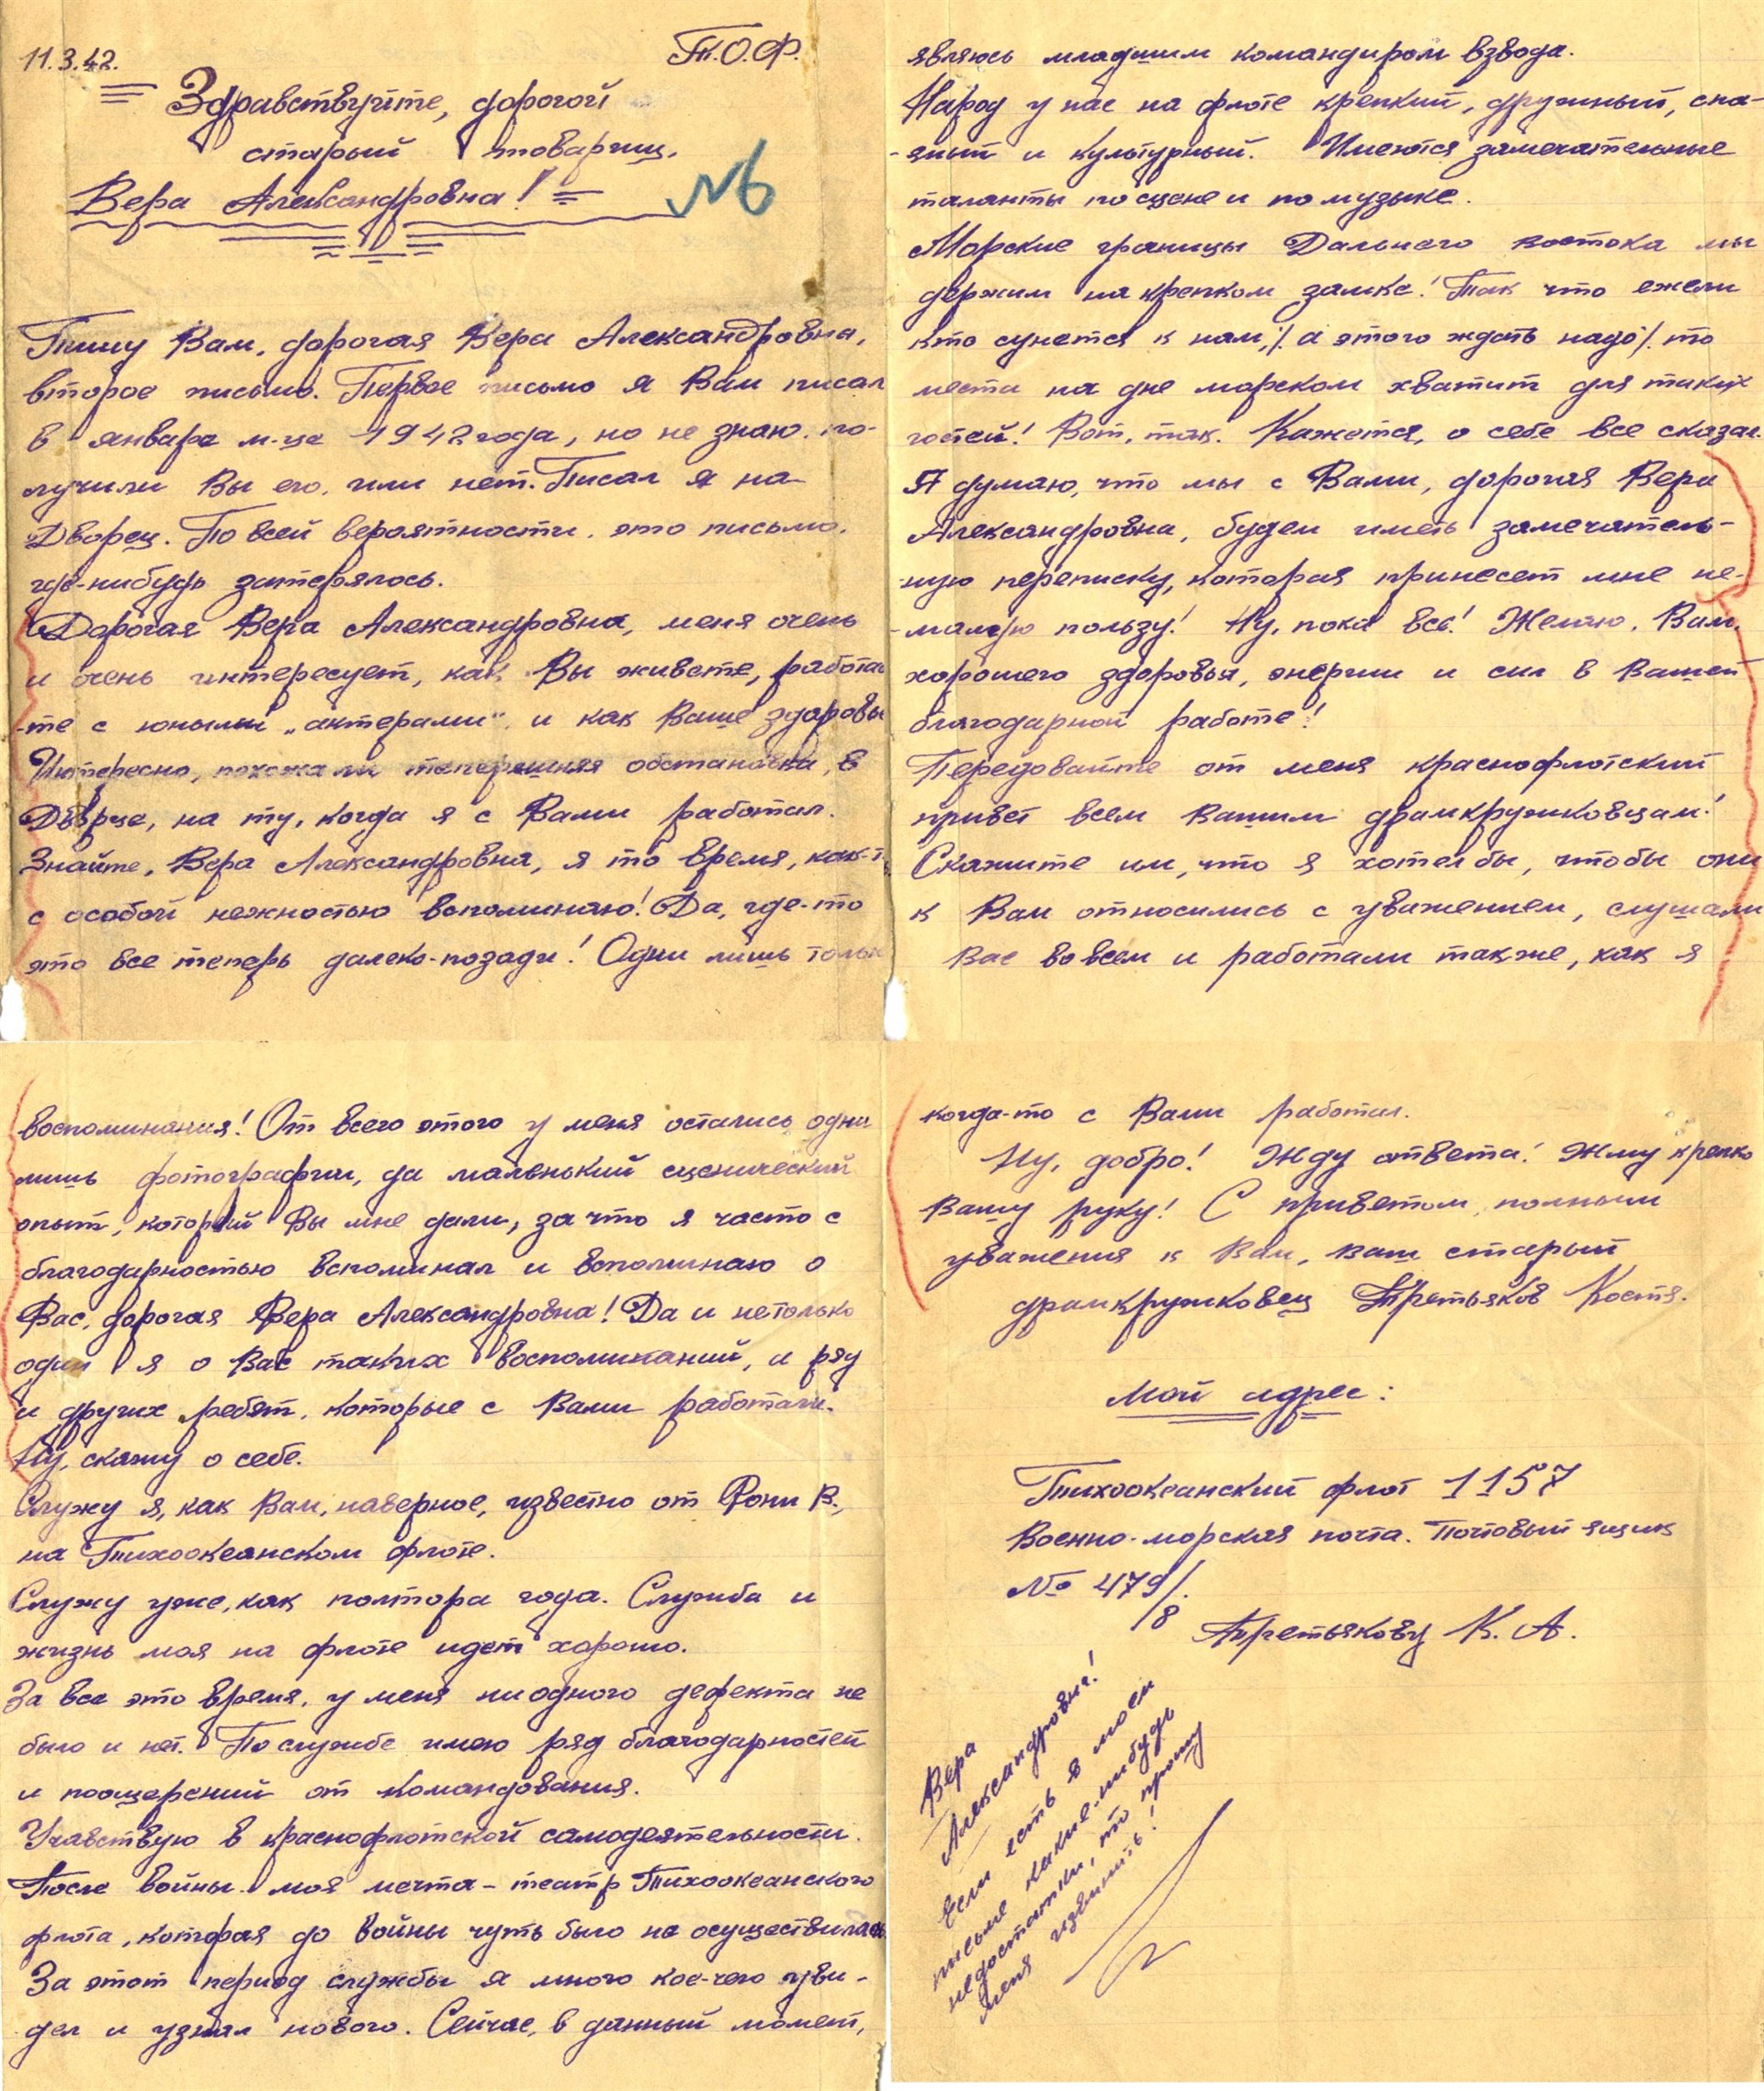 11.3.42.
Т.О.Ф.
Здравствуйте, дорогой
старый товарищ,
Вера Александровна!
№6
Пишу Вам, дорогая Вера Александровна,
второе письмо. Первое письмо я Вам писал
в январе м-це 1942 года, но не знаю, по-
лучили Вы его, или нет. Писал я на
Дворец. По всей вероятности, это письмо,
где-нибудь затерялось.
Дорогая Вера Александровна, меня очень
и очень интересует, как Вы живете, работае
-те с юными „актерами“, и как Ваше здоровье
Интересно, похожа ли теперешняя обстановка, в
Дворце, на ту, когда я с Вами работал.
Знайте, Вера Александровна, я то время, как-то
с особой нежностью вспоминаю! Да, где-то
это все теперь далеко-позади! Одни лишь только
воспоминания! От всего этого у меня остались одни
лишь фотографии, да маленький сценический
опыт, который Вы мне дали, за что я часто с
благодарностью вспоминал и вспоминаю о
Вас, дорогая Вера Александровна! Да и нетолько
один я о Вас таких воспоминаний, и ряд
и других ребят, которые с Вами работали.
Ну, скажу о себе.
Служу я, как Вам, наверное, известно от Фони В.,
на Тихоокеанском флоте.
Служу уже, как полтора года. Служба и
жизнь моя на флоте идет хорошо.
За все это время, у меня ниодного дефекта не
было и нет. По службе имею ряд благодарностей
и поощерений от командования.
Учавствую в краснофлотской самодеятельности.
После войны моя мечта - театр Тихоокеанского
флота, которая до войны чуть было не осуществилась
За этот период службы я много кое-чего уви-
дел и узнал нового. Сейчас, в данный момент,
являюсь младшим командиром взвода.
Народ у нас на флоте крепкий, дружный, спа-
-яный и культурный. Имеются замечательные
таланты по сцене и по музыке.
Морские границы Дальнего востока мы
держим на крепком замке! Так что ежели
кто сунется к нам, /. а этого ждать надо /. то
места на дне морском хватит для таких
гостей! Вот, так. Кажется, о себе все сказал.
Я думаю, что мы с Вами, дорогая Вера
Александровна, будем иметь замечатель-
-ную переписку, которая принесет мне не-
-малую пользу! Ну, пока все! Желаю, Вам,
хорошего здоровья, энергии и сил в Вашей
благодарной работе!
Передовайте от меня краснофлотский
привет всем Вашим драмкружковцам!
Скажите им, что я хотел бы, чтобы они
к Вам относились с уважением, слушали
Вас во всем и работали также, как я
когда-то с Вами работал.
Ну, добро! Жду ответа! Жму крепко
Вашу руку! С приветом, полным
уважения к Вам, ваш старый
драмкружковец Третьяков Костя.
Мой адрес:
Тихоокеанский флот 1157
Военно-морская почта. Почтовый ящик
№ 479/8.
Третьякову К. А.
Вера
Александровна!
Если есть в моем
письме какие-нибудь
недостатки, то прошу
меня извинить!